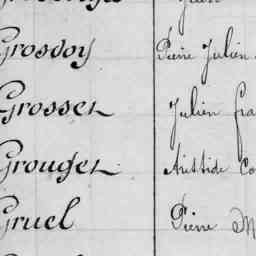 Grosdoy Pierre Julien
Grosset Julien Fra
Grouget Aristide Co
Gruel Pierre M